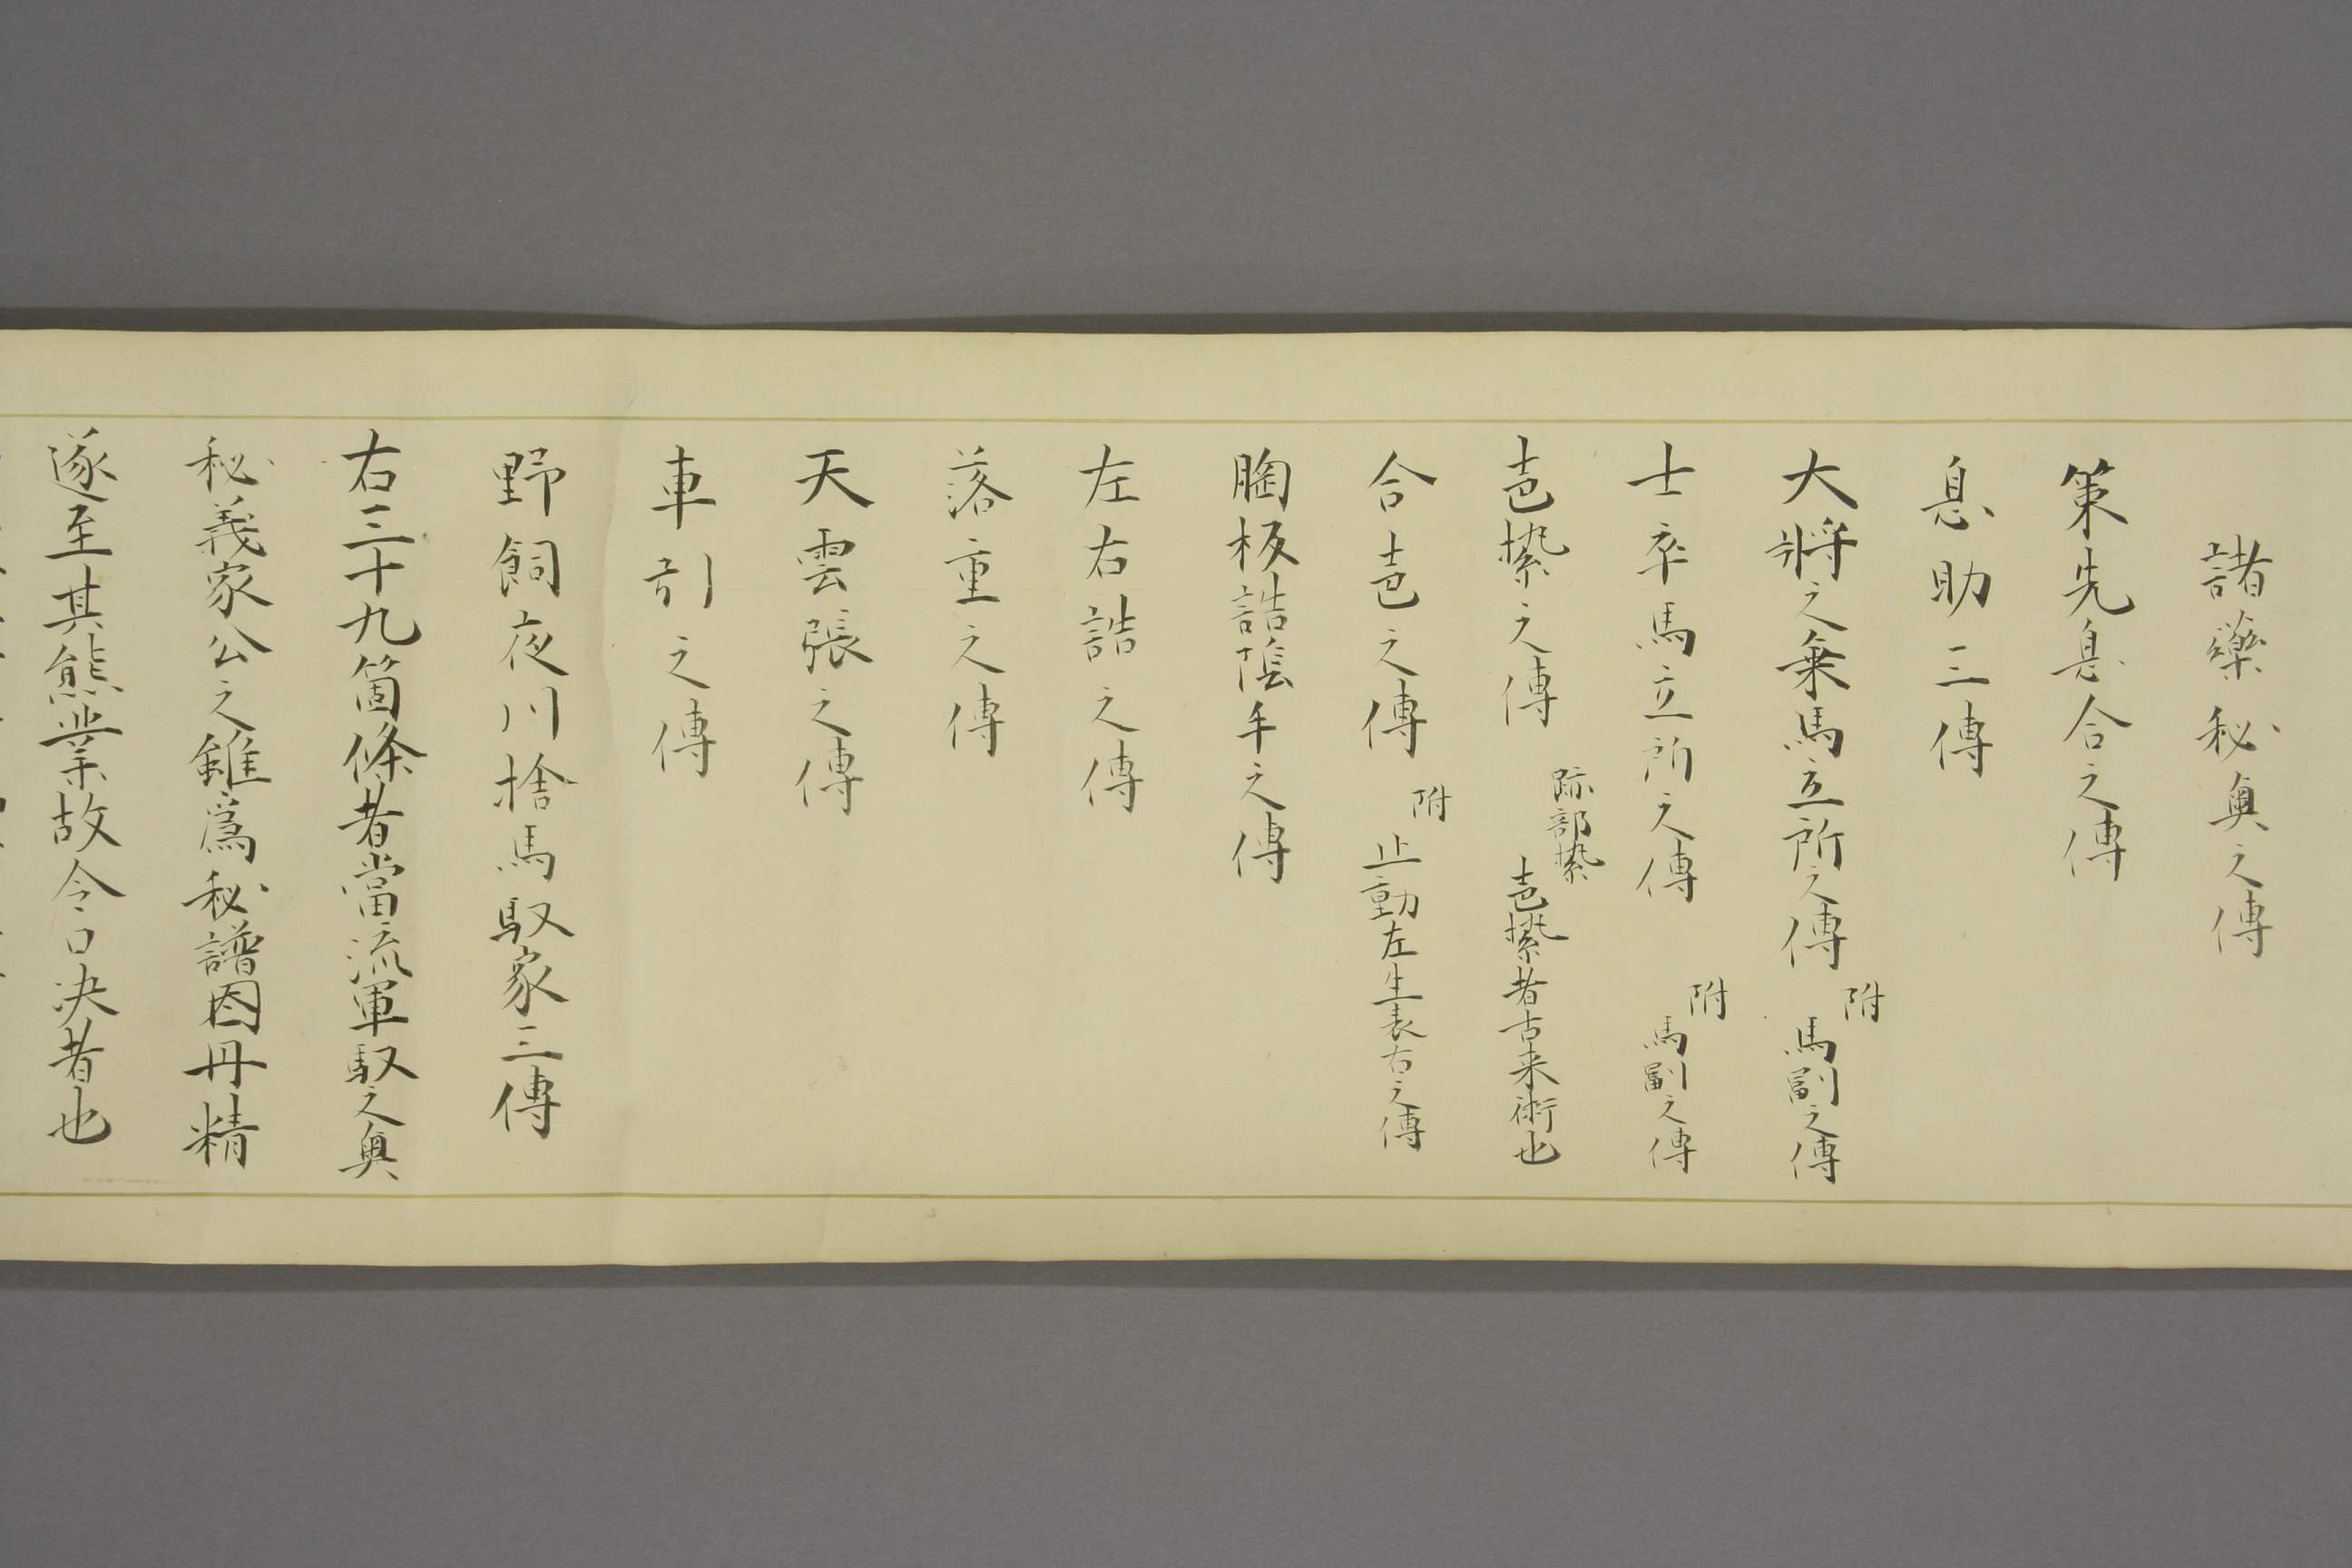 諸藥秘奥之傳
策先息合之傳
息助三傳
大將之乗馬立所之傳 附 馬副之傳
士卒馬立所之傳 附 馬副之傳
之傳 跡部 者古来術也
合 之傳 附 止動左生表右之傳
胸板詰陰手之傳
左右詰之傳
落重之傳
天雲張之傳
車引之傳
野飼夜川捨馬馭家三傳
右三十九箇條者當流軍馭之奥
秘義家公之雖爲秘譜因丹精
遂至其熊業故令口決者也